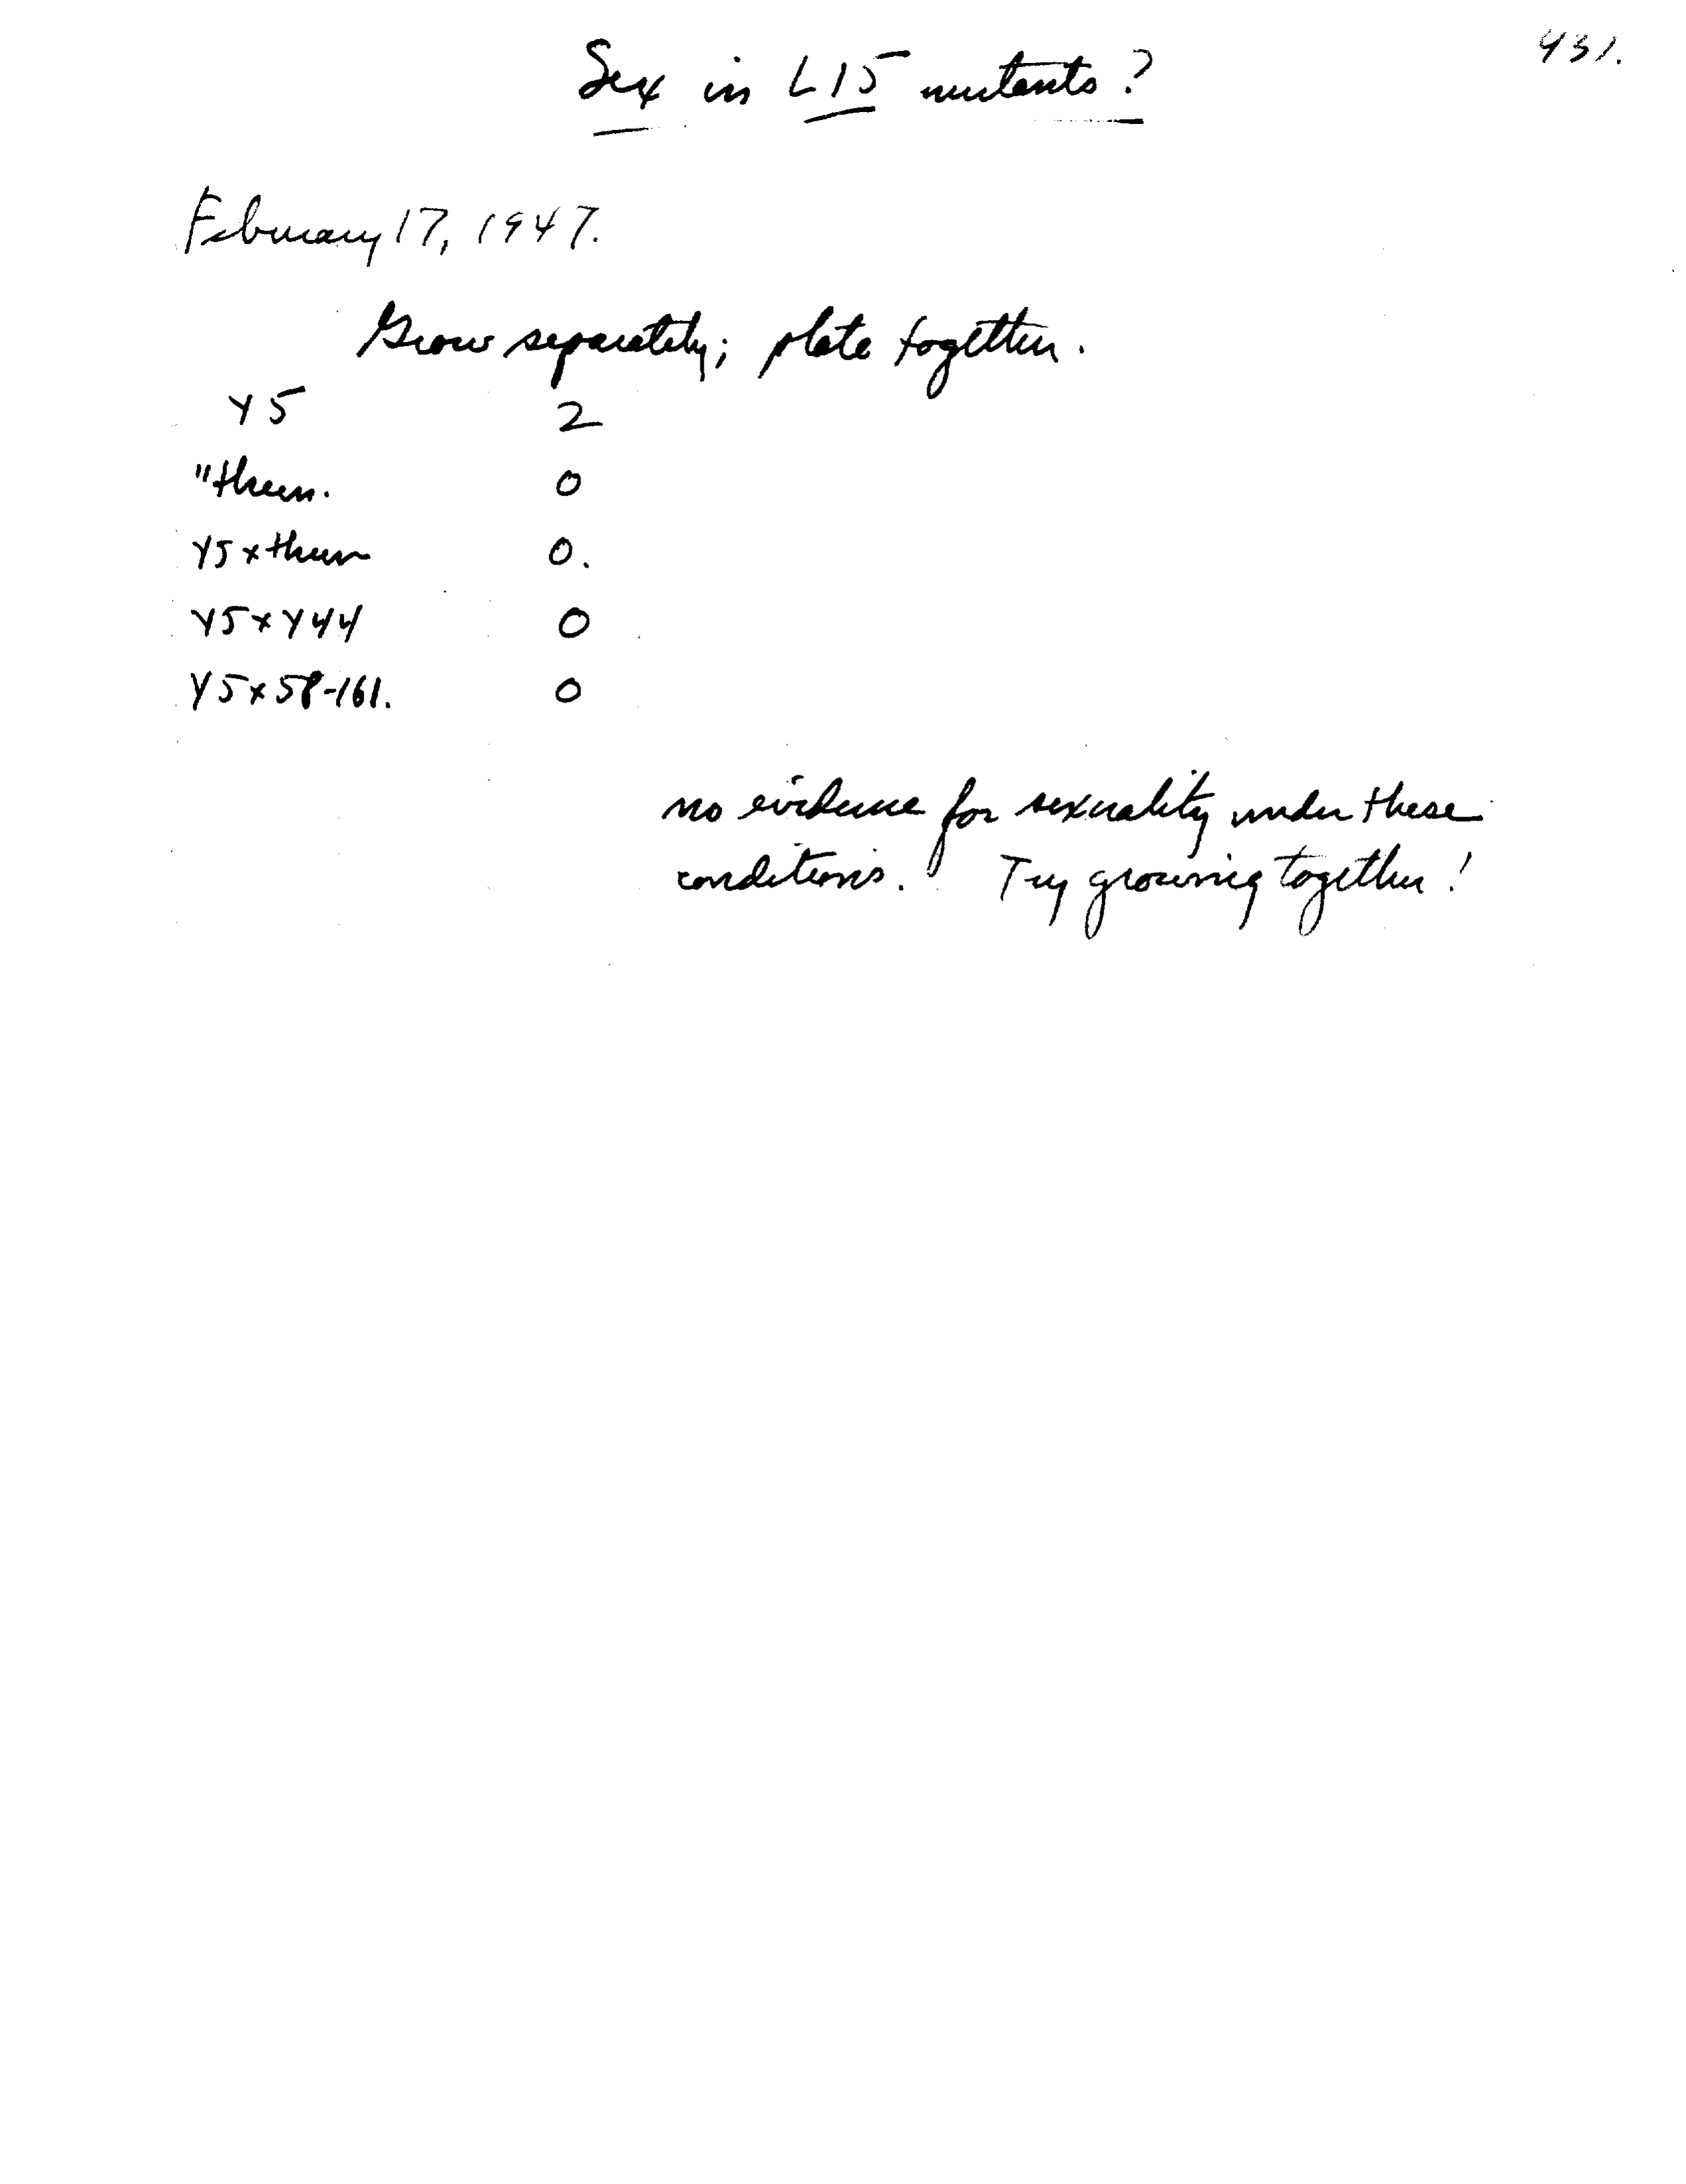 431.
Sex in L15 mutants?
February 17, 1947.
Grow separately; plate together.
Y5 2
" 0
Y5 x 0.
Y5 x Y44 0
Y5 x 58-161. 0
no evidence for sexuality under these
conditions. Try growing together!